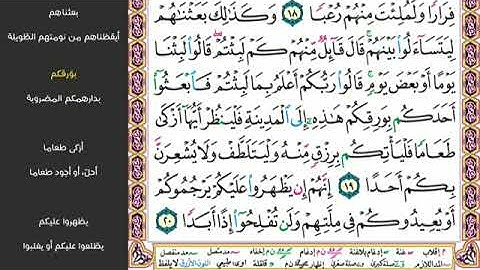 بعثناهم
أيقظناهم من نومتهم الطويلة
بورقكم
بدارهمكم المضروبة
أزكى طعاما
أحل، أو أجود طعاما
يظهروا عليكم
يطلعوا عليكم أو يغلبوا
فِرَارًا وَلَمُلِئْتَ مِنْهُمْ رُعْبًا ١٨ وَكَذَٰلِكَ بَعَثْنَٰهُمْ
لِيَتَسَآءَلُوا۟ بَيْنَهُمْ ۚ قَالَ قَآئِلٌ مِّنْهُمْ كَمْ لَبِثْتُمْ ۖ قَالُوا۟ لَبِثْنَا
يَوْمًا أَوْ بَعْضَ يَوْمٍ ۚ قَالُوا۟ رَبُّكُمْ أَعْلَمُ بِمَا لَبِثْتُمْ فَٱبْعَثُوٓا۟
أَحَدَكُم بِوَرِقِكُمْ هَٰذِهِۦٓ إِلَى ٱلْمَدِينَةِ فَلْيَنظُرْ أَيُّهَآ أَزْكَىٰ
طَعَامًا فَلْيَأْتِكُم بِرِزْقٍ مِّنْهُ وَلْيَتَلَطَّفْ وَلَا يُشْعِرَنَّ
بِكُمْ أَحَدًا ١٩ إِنَّهُمْ إِن يَظْهَرُوا۟ عَلَيْكُمْ يَرْجُمُوكُمْ
أَوْ يُعِيدُوكُمْ فِى مِلَّتِهِمْ وَلَن تُفْلِحُوٓا۟ إِذًا أَبَدًا ٢٠